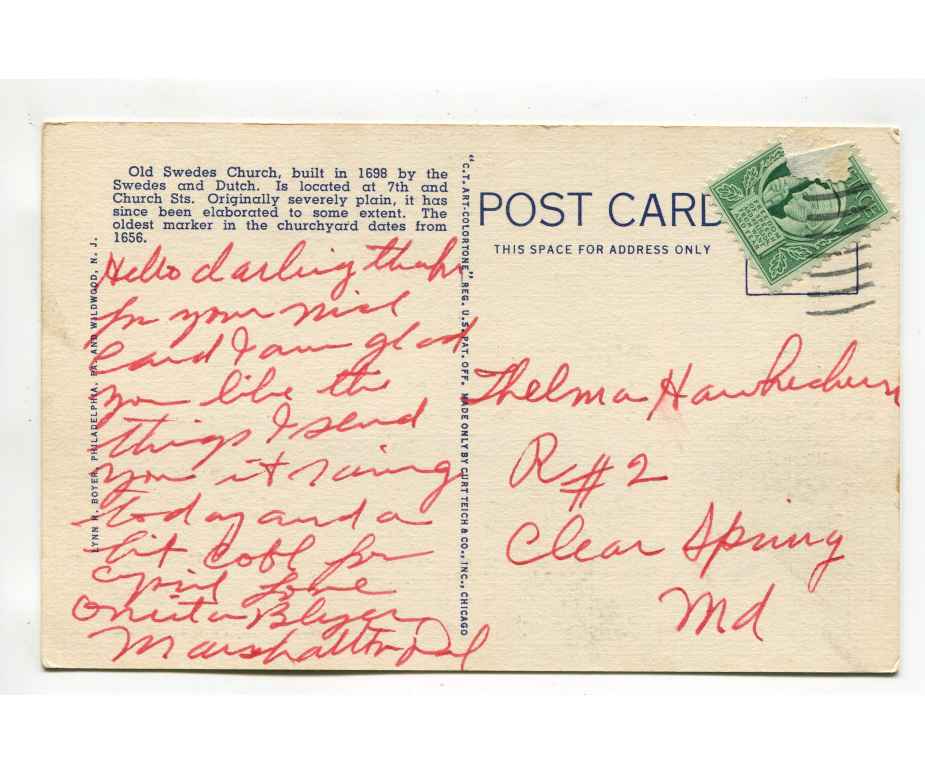 Old Swedes Church, built in 1698 by the
Swedes and Dutch. Is located at 7th and
Church Sts. Originally severely plain, it has
since been elaborated to some extent. The
oldest marker in the churchyard dates from
1656.
Hello darling thanks
for your nice
Card I am glad
you like the
things I send
you it raining
today and a
bit cool for
april love
Marshallton Del
LYNN H. BOYER, PHILADELPHIA, PA. AND WILDWOOD, N. J.
"C.T. ART-COLORTONE" REG. U.S. PAT. OFF. MADE ONLY BY CURT TEICH & CO., INC., CHICAGO
POST CARD
THIS SPACE FOR ADDRESS ONLY
Thelma
R # 2
Clear Spring
Md